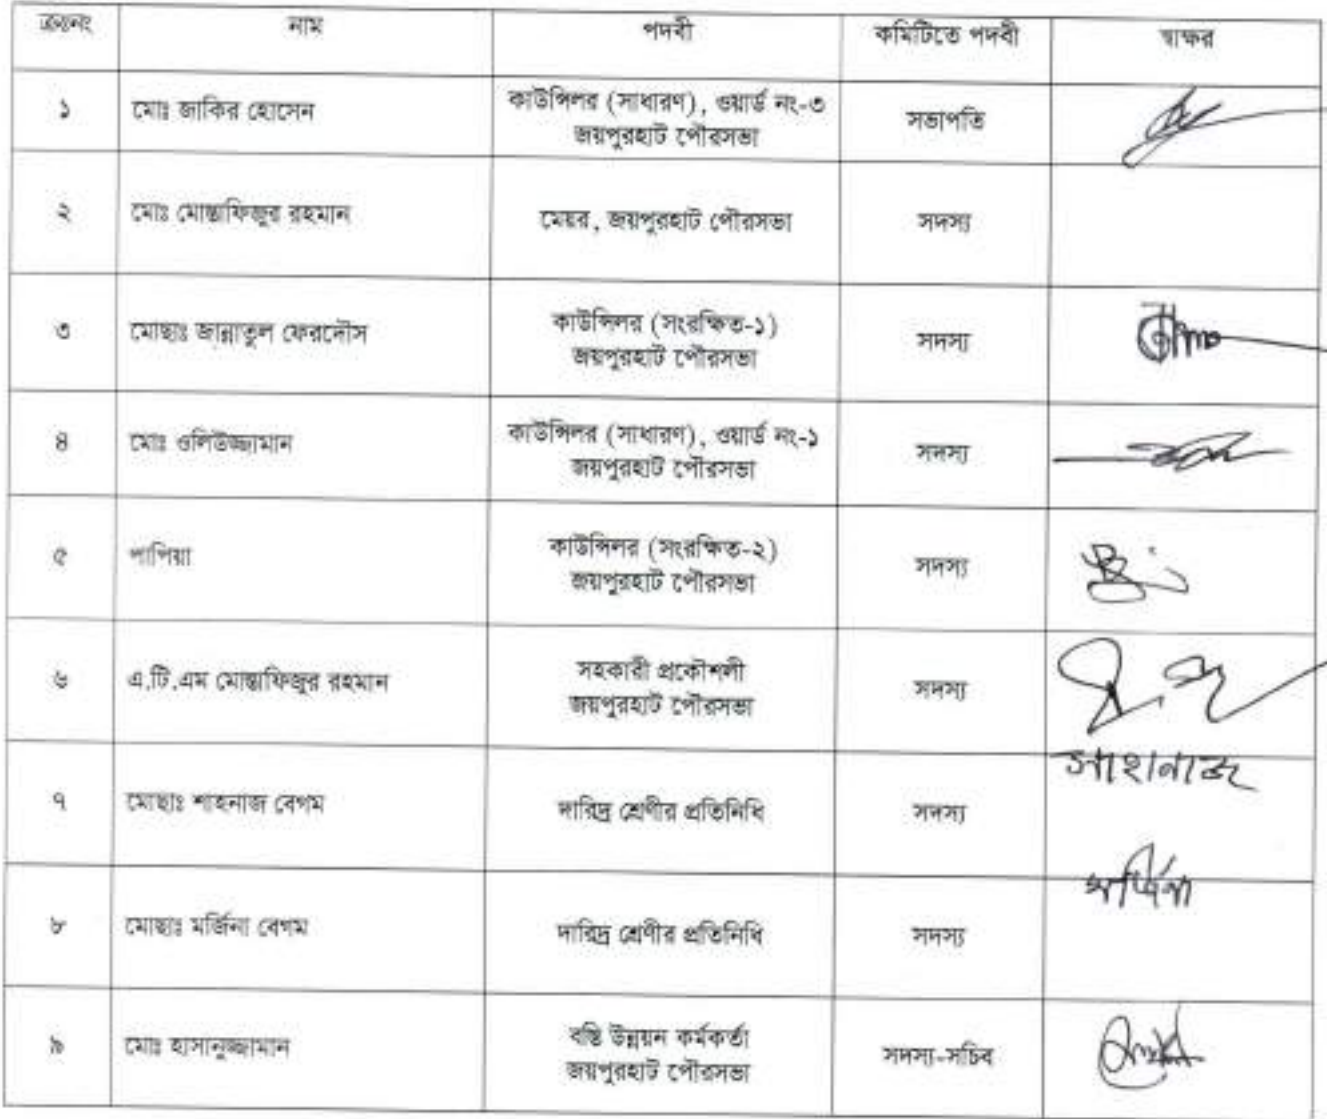 ক্রঃনং নাম পদবী কমিটিতে পদবী স্বাক্ষর
১ মোঃ জাকির হোসেন কাউন্সিলর (সাধারণ), ওয়ার্ড নং-৩ সভাপতি
জয়পুরহাট পৌরসভা
২ মোঃ মোস্তাফিজুর রহমান মেয়র, জয়পুরহাট পৌরসভা সদস্য
৩ মোছাঃ জান্নাতুল ফেরদৌস কাউন্সিলর (সংরক্ষিত-১) সদস্য
জয়পুরহাট পৌরসভা
৪ মোঃ ওলিউজ্জামান কাউন্সিলর (সাধারণ), ওয়ার্ড নং-১ সদস্য
জয়পুরহাট পৌরসভা
৫ পাপিয়া কাউন্সিলর (সংরক্ষিত-২) সদস্য
জয়পুরহাট পৌরসভা
৬ এ.টি.এম মোস্তাফিজুর রহমান সহকারী প্রকৌশলী সদস্য
জয়পুরহাট পৌরসভা
সাহানাজ
৭ মোছাঃ শাহনাজ বেগম দারিদ্র শ্রেণীর প্রতিনিধি সদস্য
মর্জিনা
৮ মোছাঃ মর্জিনা বেগম দারিদ্র শ্রেণীর প্রতিনিধি সদস্য
৯ মোঃ হাসানুজ্জামান বস্তি উন্নয়ন কর্মকর্তা সদস্য-সচিব
জয়পুরহাট পৌরসভা